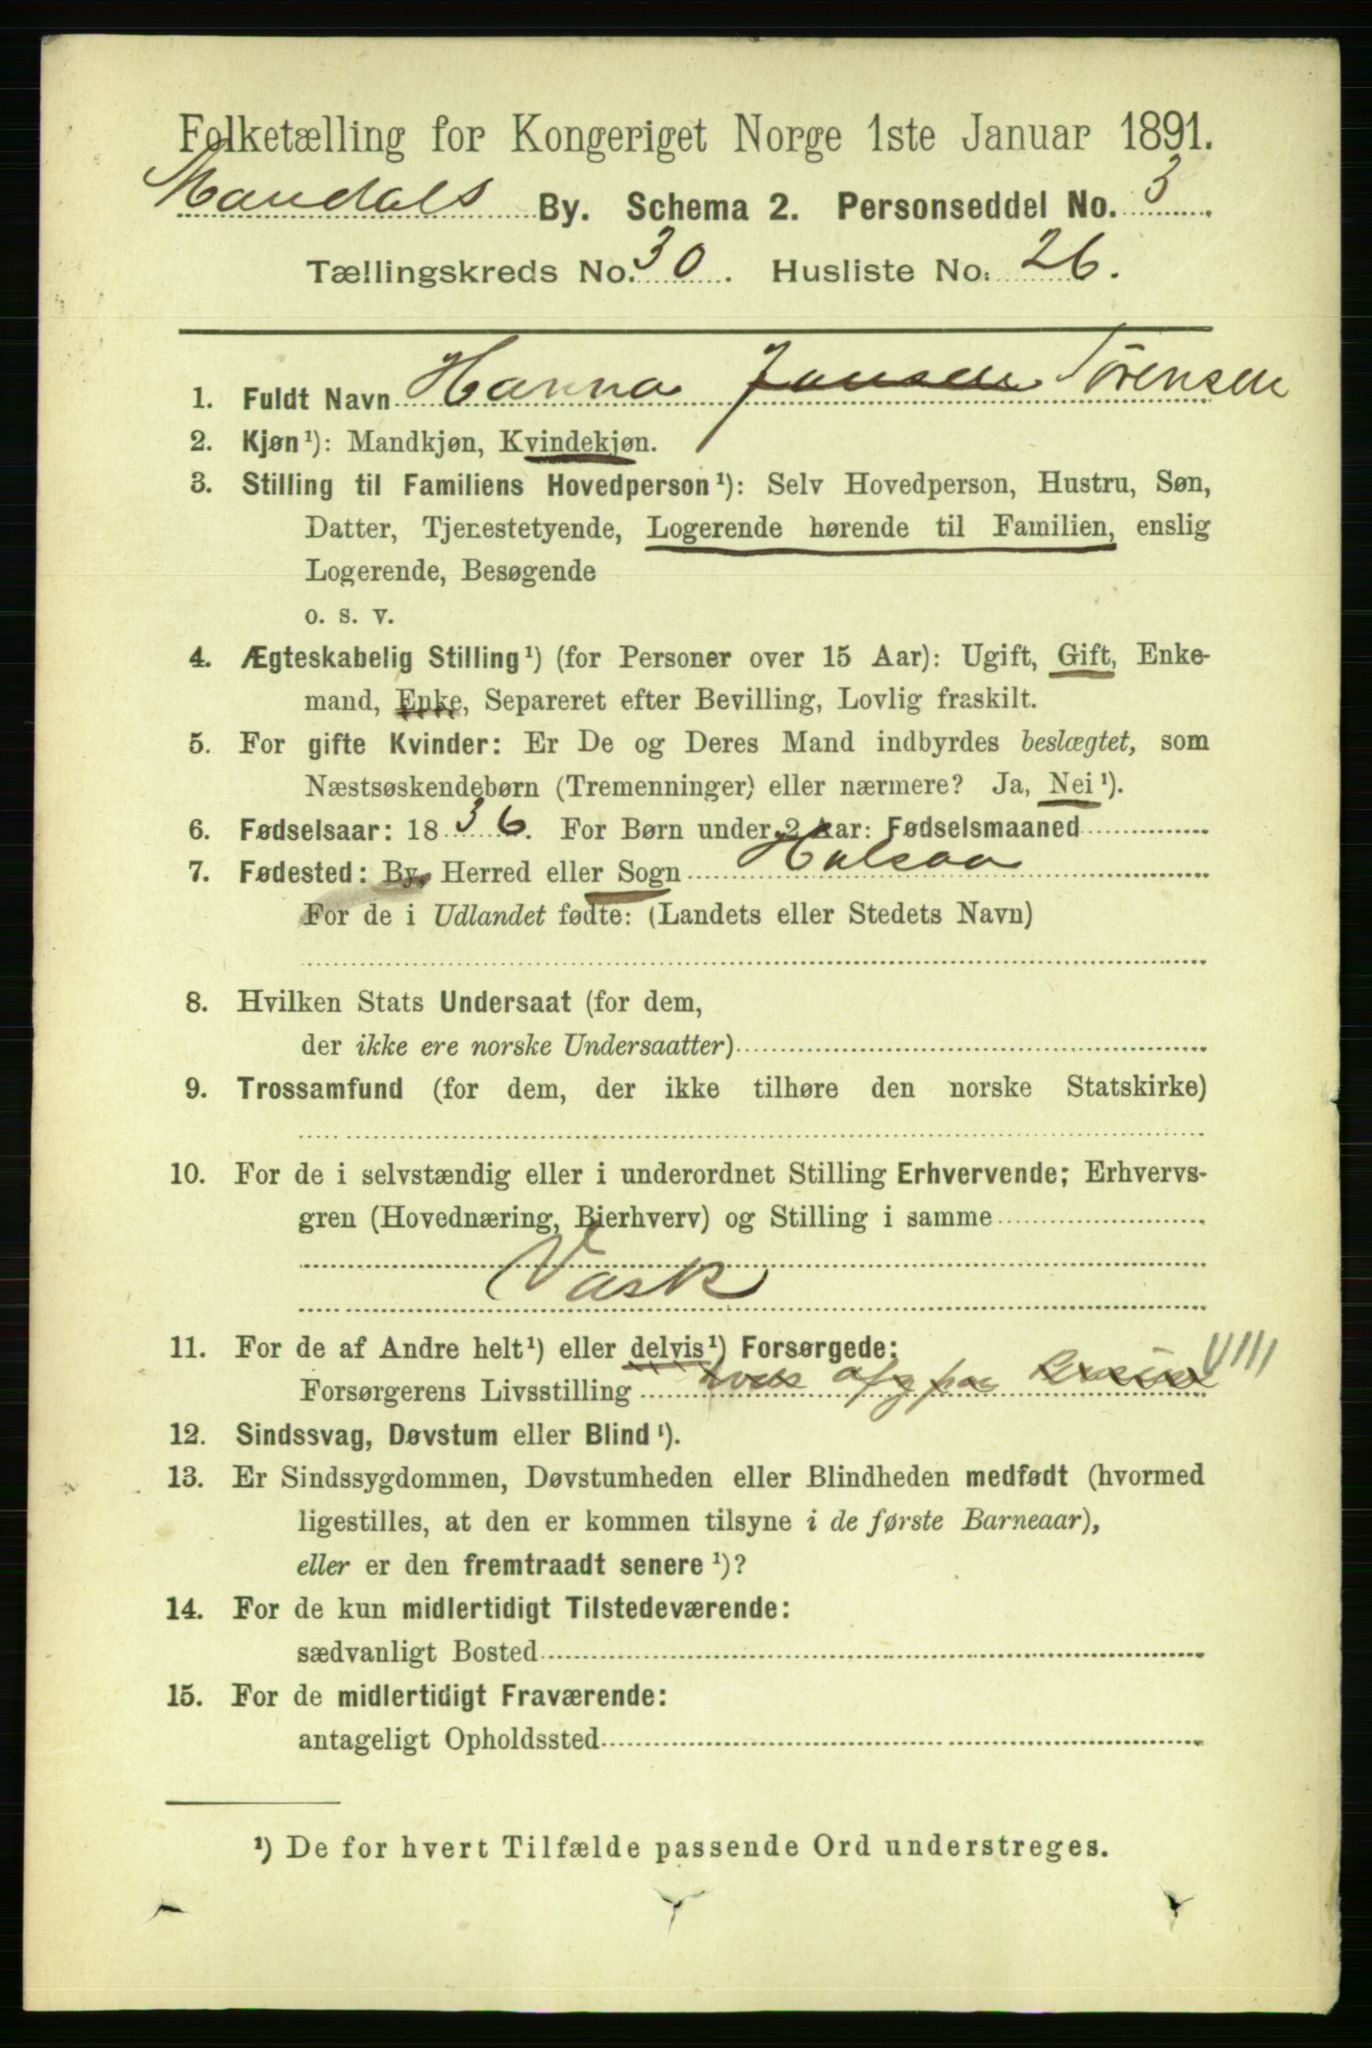 Folketælling for Kongeriget Norge 1ste Januar 1891.
Mandals By. Schema 2. Personseddel No. 3
Tællingskreds No. 30. Husliste No. 26.
1. Fuldt Navn Hanna Jansen Sörensen
2. Kjøn¹): Mandkjøn, Kvindekjøn.
3. Stilling til Familiens Hovedperson¹): Selv Hovedperson, Hustru, Søn,
Datter, Tjenestetyende, Logerende hørende til Familien, enslig
Logerende, Besøgende
o. s. v.
4. Ægteskabelig Stilling¹) (for Personer over 15 Aar): Ugift, Gift, Enke-
mand, Enke, Separeret efter Bevilling, Lovlig fraskilt.
5. For gifte Kvinder: Er De og Deres Mand indbyrdes beslægtet, som
Næstsøskendebørn (Tremenninger) eller nærmere? Ja, Nei¹).
6. Fødselsaar: 1836. For Børn under 2 Aar: Fødselsmaaned
7. Fødested: By, Herred eller Sogn Halsaa
For de i Udlandet fødte: (Landets eller Stedets Navn)
8. Hvilken Stats Undersaat (for dem,
der ikke ere norske Undersaatter)
9. Trossamfund (for dem, der ikke tilhøre den norske Statskirke)
10. For de i selvstændig eller i underordnet Stilling Erhvervende; Erhvervs-
gren (Hovednæring, Bierhverv) og Stilling i samme
Vask
11. For de af Andre helt¹) eller delvis¹) Forsørgede;
Forsørgerens Livsstilling
12. Sindssvag, Døvstum eller Blind¹).
13. Er Sindssygdommen, Døvstumheden eller Blindheden medfødt (hvormed
ligestilles, at den er kommen tilsyne i de første Barneaar),
eller er den fremtraadt senere¹)?
14. For de kun midlertidigt Tilstedeværende:
sædvanligt Bosted
15. For de midlertidigt Fraværende:
antageligt Opholdssted
¹) De for hvert Tilfælde passende Ord understreges.